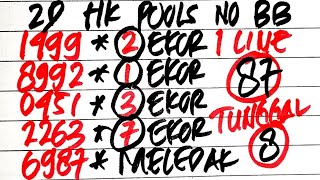 2D HK POOLS NO BB
1499 * 2 EKOR 1 LINE
8992 * 1 EKOR 87
0451 * 3 EKOR TUNGGAL
2263 * 7 EKOR 8
6987 * MELEDAK